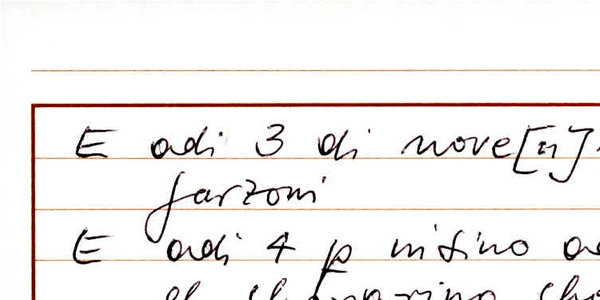 E adi 3 di nove[n]
garzoni
E adi 4 p infino a
el